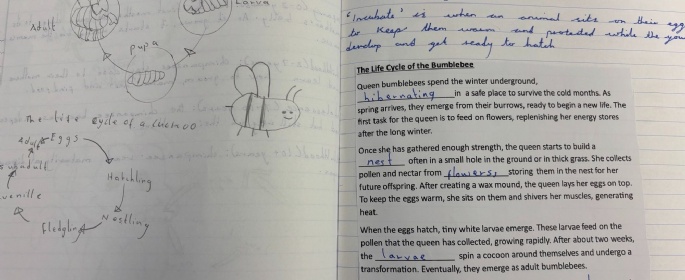 Larva
Adult
Pupa
The life cycle of a cuckoo
Eggs
Adult
Hatchling
Nestling
Fledgling
'Incubate' is when an animal sits on their egg
to keep them warm and protected while the you
develop and get ready to hatch
The Life Cycle of the Bumblebee
Queen bumblebees spend the winter underground,
hibernating in a safe place to survive the cold months. As
spring arrives, they emerge from their burrows, ready to begin a new life. The
first task for the queen is to feed on flowers, replenishing her energy stores
after the long winter.
Once she has gathered enough strength, the queen starts to build a
nest often in a small hole in the ground or in thick grass. She collects
pollen and nectar from flowers, storing them in the nest for her
future offspring. After creating a wax mound, the queen lays her eggs on top.
To keep the eggs warm, she sits on them and shivers her muscles, generating
heat.
When the eggs hatch, tiny white larvae emerge. These larvae feed on the
pollen that the queen has collected, growing rapidly. After about two weeks,
the larvae spin a cocoon around themselves and undergo a
transformation. Eventually, they emerge as adult bumblebees.